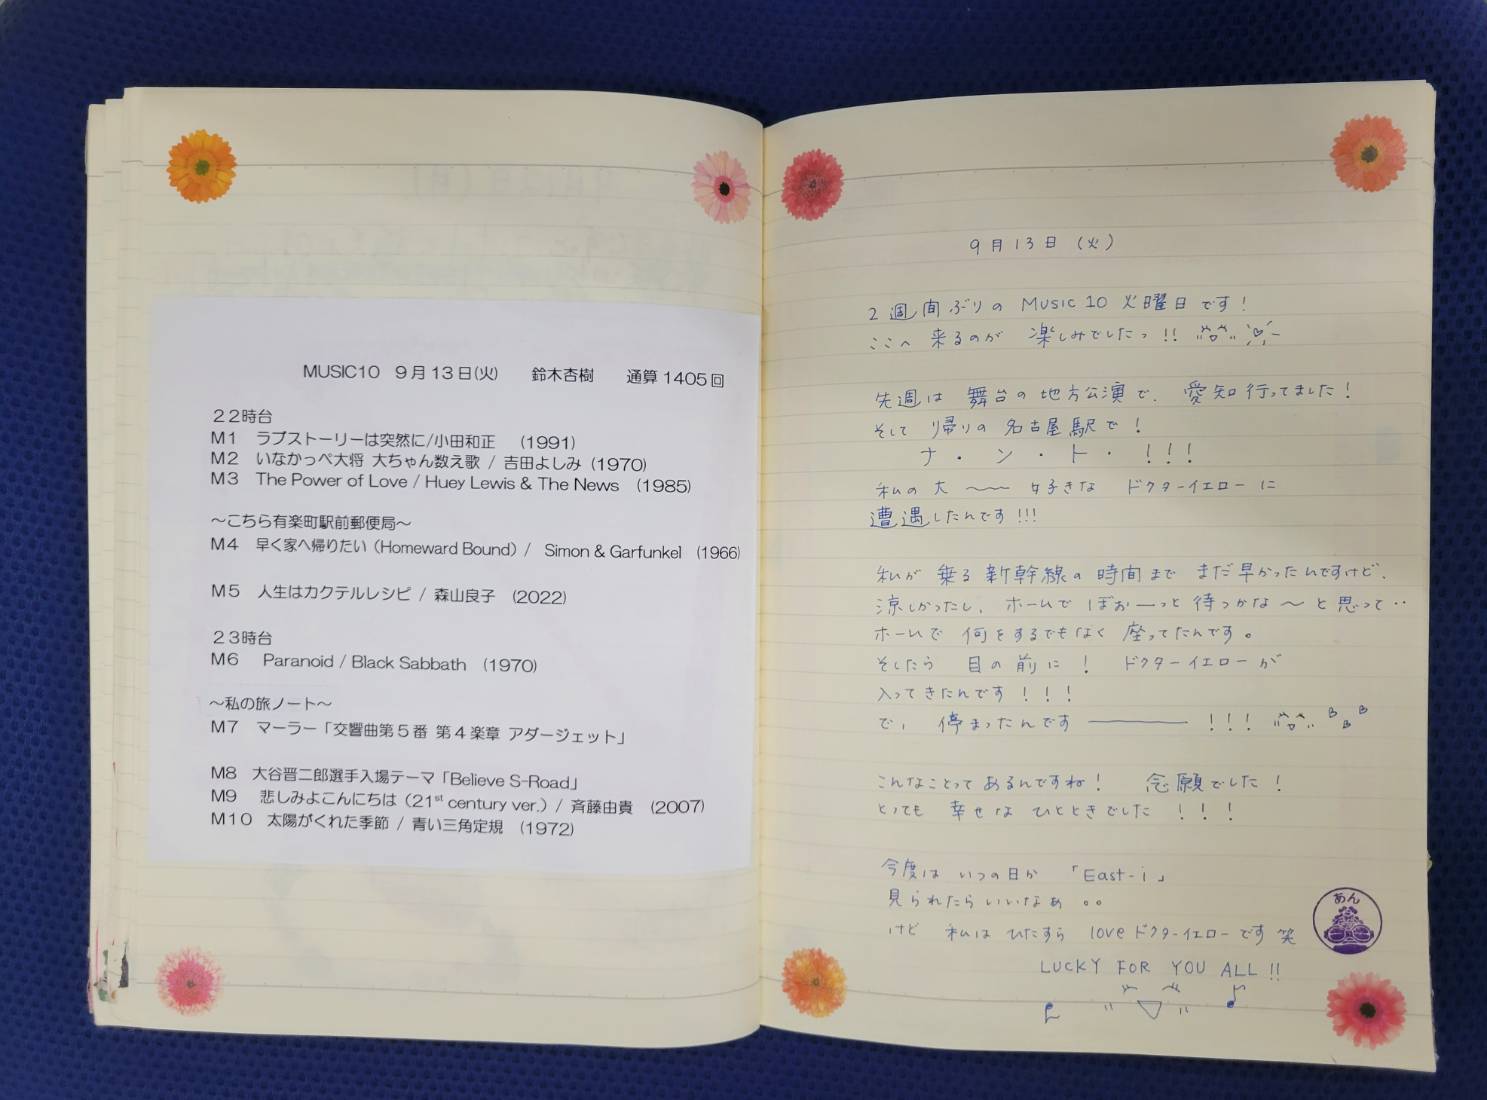 MUSIC10 9月13日(火) 鈴木杏樹 通算1405回
22時台
M1 ラブストーリーは突然に/小田和正 (1991)
M2 いなかっぺ大将 大ちゃん数え歌 / 吉田よしみ (1970)
M3 The Power of Love / Huey Lewis & The News (1985)
～こちら有楽町駅前郵便局～
M4 早く家へ帰りたい (Homeward Bound) / Simon & Garfunkel (1966)
M5 人生はカクテルレシピ / 森山良子 (2022)
23時台
M6 Paranoid / Black Sabbath (1970)
～私の旅ノート～
M7 マーラー「交響曲第5番 第4楽章 アダージェット」
M8 大谷晋二郎選手入場テーマ「Believe S-Road」
M9 悲しみよこんにちは (21st century ver.) / 斉藤由貴 (2007)
M10 太陽がくれた季節 / 青い三角定規 (1972)
9月13日(火)
2週間ぶりの Music10 火曜日です!
ここへ 来るのが 楽しみでしたっ!!
先週は 舞台の地方公演で、愛知行ってました!
そして 帰りの 名古屋駅で!
ナ・ン・ト・!!!
私の大〜〜好きな ドクターイエローに
遭遇したんです!!!
私が 乗る 新幹線の 時間まで まだ早かったんですけど、
涼しかったし、ホームで ぼぉーっと 待つかな〜と思って‥
ホームで 何をするでもなく 座ってたんです。
そしたら 目の前に! ドクターイエローが
入ってきたんです!!!
で、停まったんです――――!!!
こんなことって あるんですね! 念願でした!
とっても 幸せな ひとときでした!!!
今度は いつの日か 「East-i」
見られたらいいなぁ。。
けど 私は ひたすら love ドクターイエローです 笑
LUCKY FOR YOU ALL!!
あん